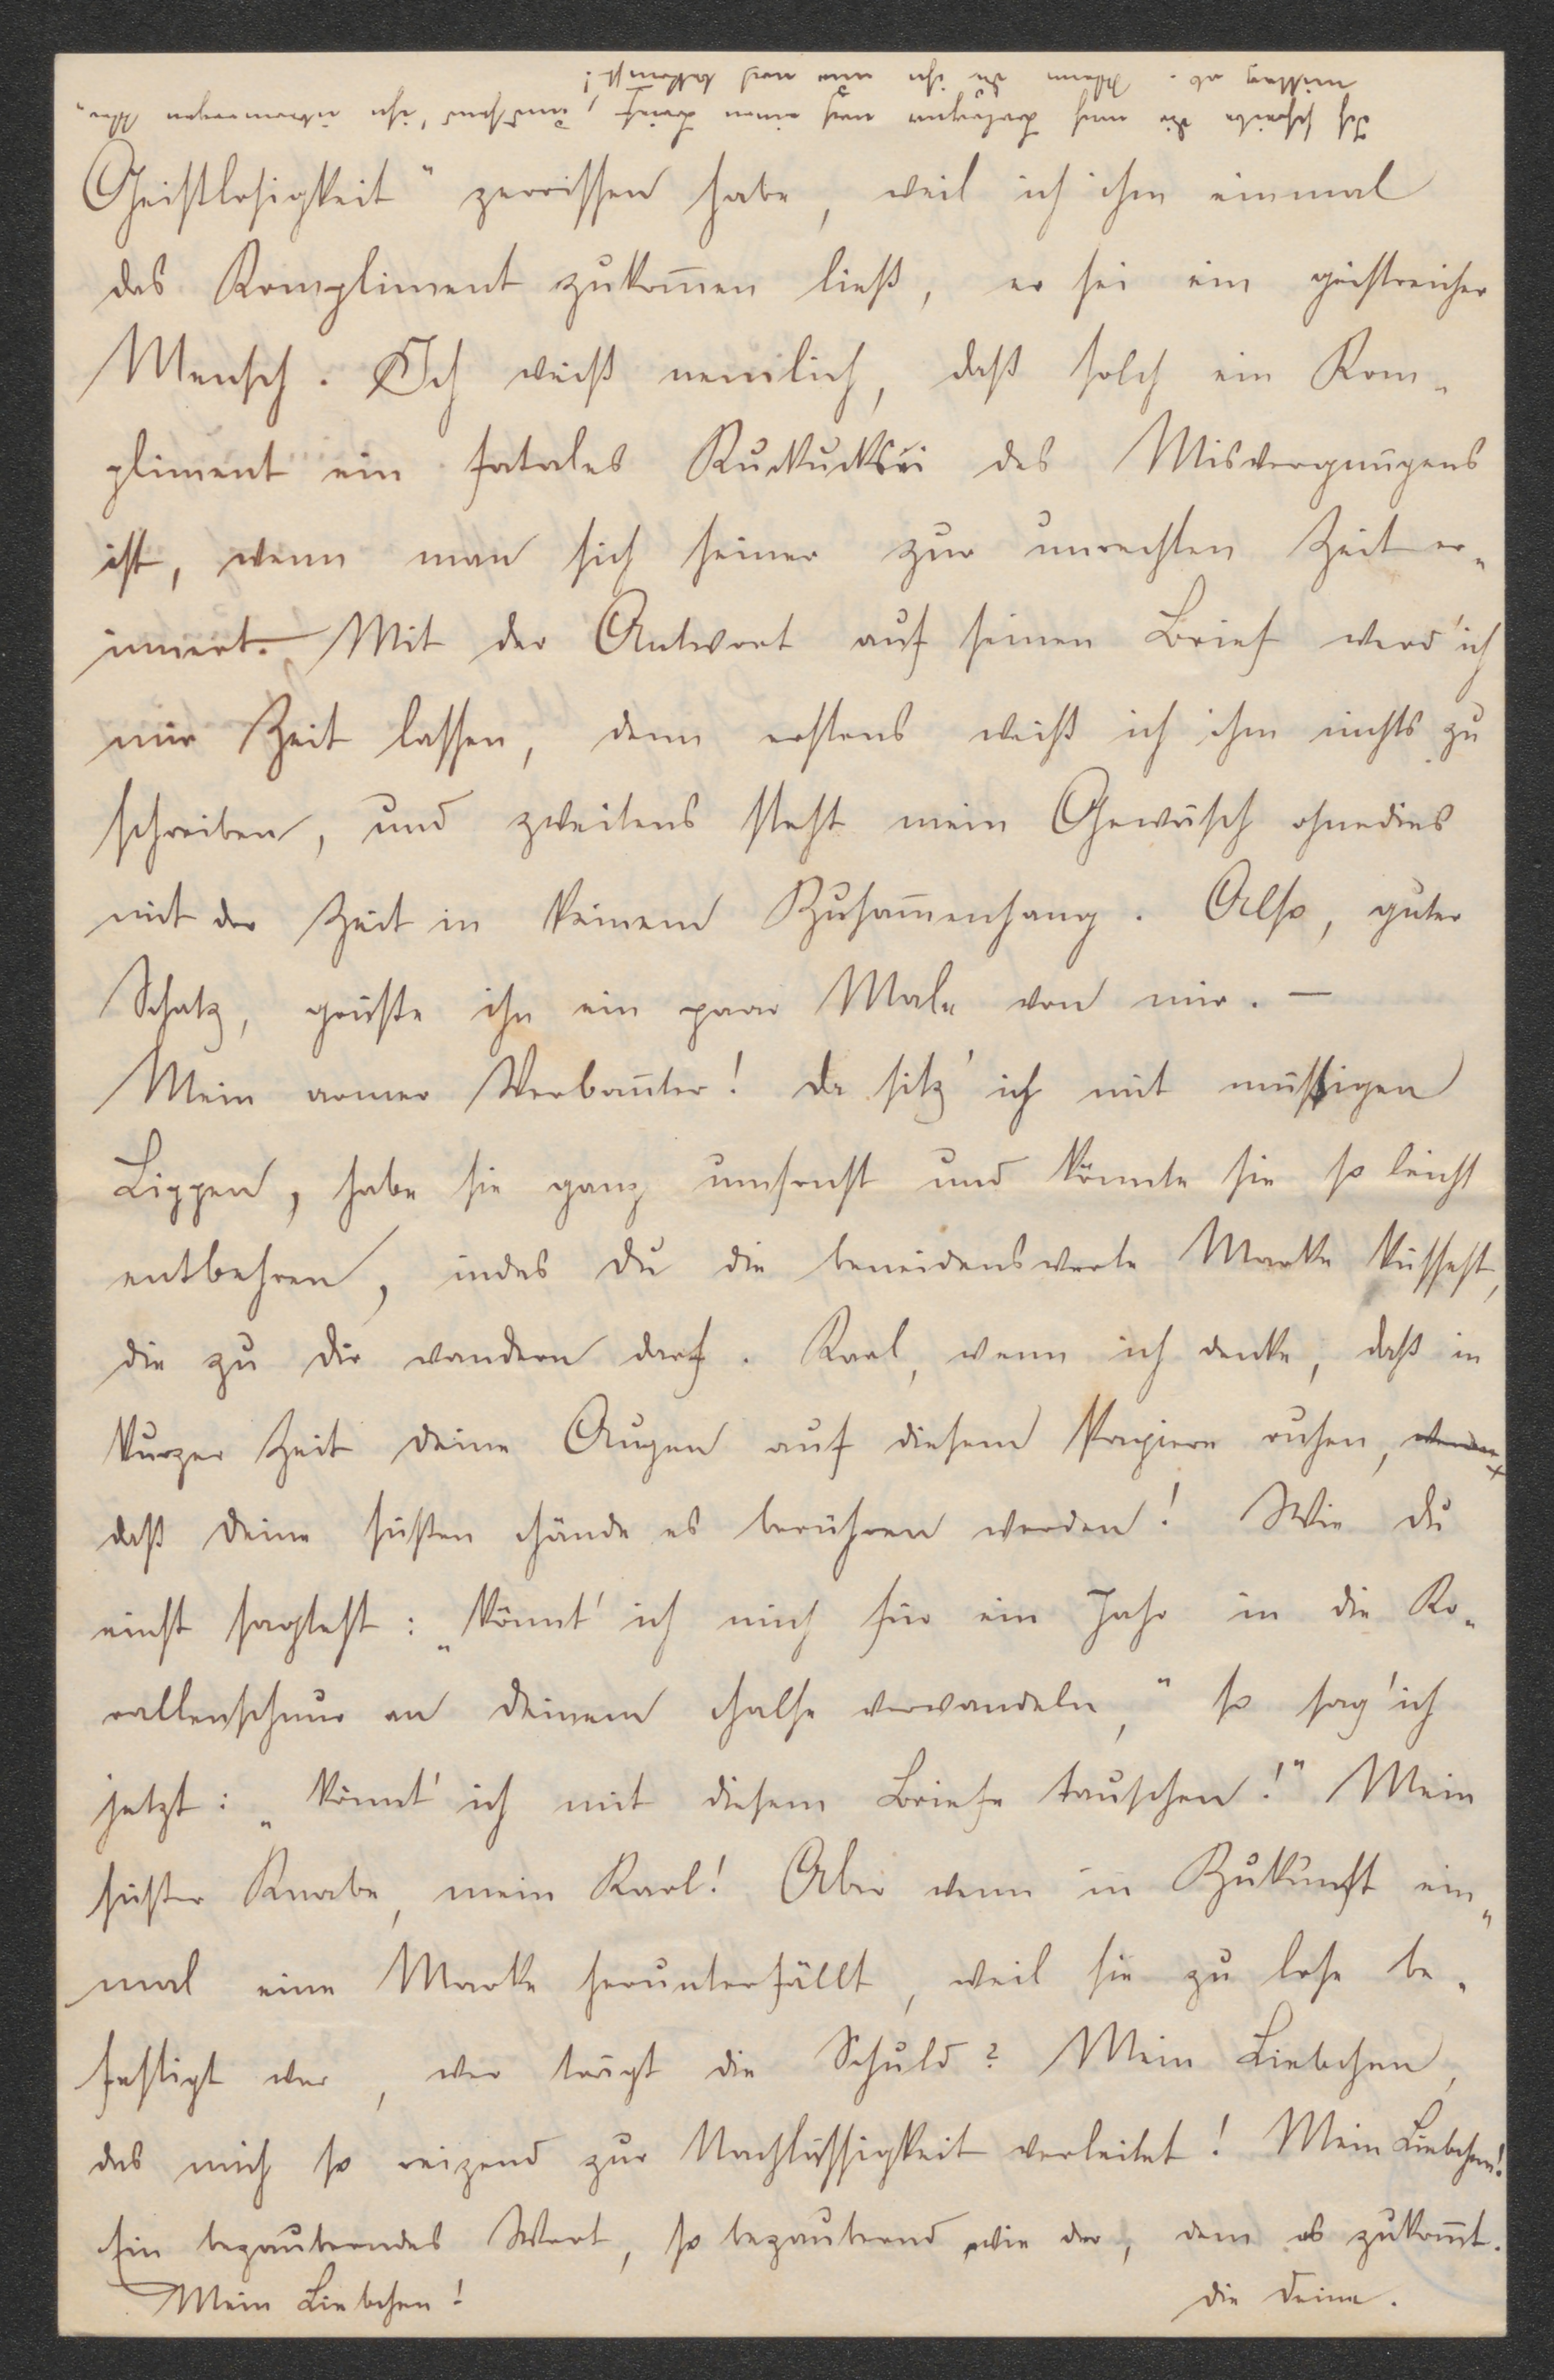 Ich schreibe dir nach Trubezen noch einen Brief, und send' ihn übermorgen Abe-
mittag ab. Wenn du ihn nur noch bekom̄st!
Geistlosigkeit" zerrissen habe, weil ich ihm einmal
das Kompliment zukom̄en ließ, er sei ein geistreicher
Mensch. Ich weiß nemlich, daß solch ein Kom-
pliment ein fatales Kuckucksei des Misvergnügens
ist, wenn man sich seiner zur unrechten Zeit er-
innert. Mit der Antwort auf seinen Brief werd' ich
mir Zeit lassen, denn erstens weiß ich ihm nichts zu
schreiben, und zweitens steht mein Gewäsch ohnedies
mit der Zeit in keinem Zusam̄enhang. Also, guter
Schatz, grüße ihn ein paar Male von mir. —
Mein armer Verban̄ter! Da sitz' ich mit müßigen
Lippen, habe sie ganz umsonst und könnte sie so leicht
entbehren, indes du die beneidenswerte Marke küssest,
die zu dir wandern darf. Karl, wenn ich denke, daß in
kurzer Zeit deine Augen auf diesem Papiere ruhen,
daß deine süßen Hände es berühren werden! Wie du
einst sagtest: „Könnt' ich mich für ein Jahr in die Ko-
rallenschnur an deinem Halse verwandeln," so sag' ich
jetzt: „Könnt' ich mit diesem Briefe tauschen!" Mein
süßer Knabe, mein Karl! Aber wenn in Zukunft ein-
mal eine Marke herunterfällt, weil sie zu lose be-
festigt war, wer trägt die Schuld? Mein Liebchen,
das mich so reizend zur Nachlässigkeit verleitet! Mein Liebchen!
Ein bezauberndes Wort, so bezaubernd wie der, dem es zukom̄t.
Mein Liebchen! Die Deine.